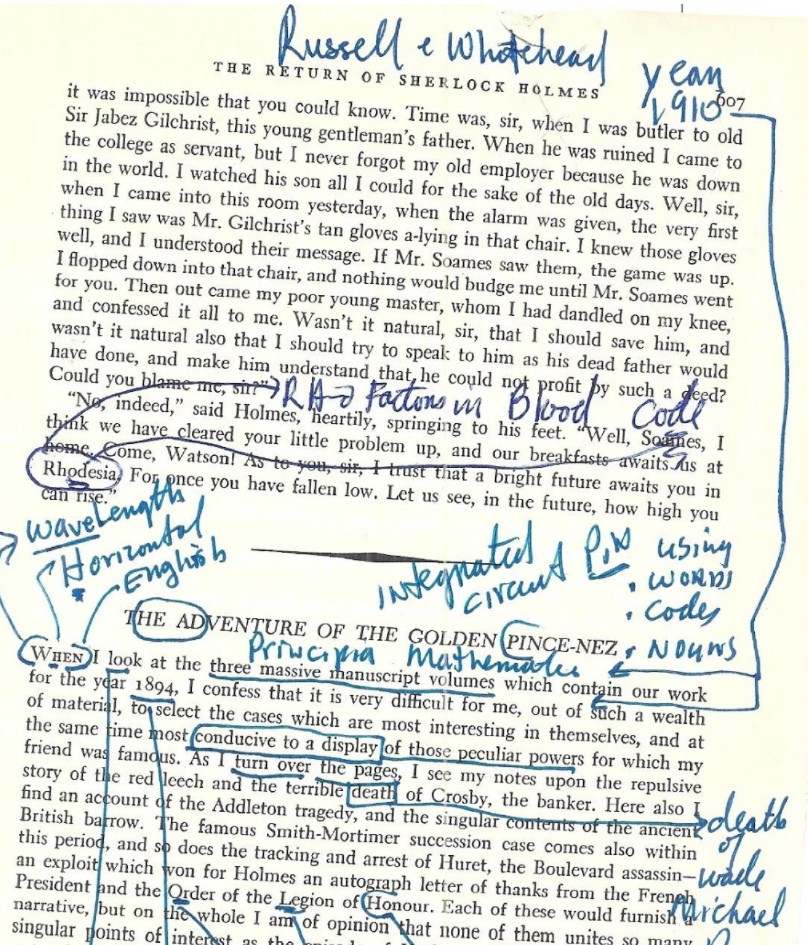 Russell e Whitehead
THE RETURN OF SHERLOCK HOLMES
year
1910
607
it was impossible that you could know. Time was, sir, when I was butler to old
Sir Jabez Gilchrist, this young gentleman's father. When he was ruined I came to
the college as servant, but I never forgot my old employer because he was down
in the world. I watched his son all I could for the sake of the old days. Well, sir,
when I came into this room yesterday, when the alarm was given, the very first
thing I saw was Mr. Gilchrist's tan gloves a-lying in that chair. I knew those gloves
well, and I understood their message. If Mr. Soames saw them, the game was up.
I flopped down into that chair, and nothing would budge me until Mr. Soames went
for you. Then out came my poor young master, whom I had dandled on my knee,
and confessed it all to me. Wasn't it natural, sir, that I should save him, and
wasn't it natural also that I should try to speak to him as his dead father would
have done, and make him understand that he could not profit by such a deed?
Could you blame me, sir?"
Factors in Blood Code
"No, indeed," said Holmes, heartily, springing to his feet. "Well, Soames, I
think we have cleared your little problem up, and our breakfasts awaits us at
home. Come, Watson! As to you, sir, I trust that a bright future awaits you in
Rhodesia. For once you have fallen low. Let us see, in the future, how high you
can rise."
wavelength
Horizontal
English
integrated
circuit Pin
using
. WORDS
. Codes
. NOUNS
THE ADVENTURE OF THE GOLDEN PINCE-NEZ
Principia Mathematica
WHEN I look at the three massive manuscript volumes which contain our work
for the year 1894, I confess that it is very difficult for me, out of such a wealth
of material, to select the cases which are most interesting in themselves, and at
the same time most conducive to a display of those peculiar powers for which my
friend was famous. As I turn over the pages, I see my notes upon the repulsive
story of the red leech and the terrible death of Crosby, the banker. Here also I
find an account of the Addleton tragedy, and the singular contents of the ancient
British barrow. The famous Smith-Mortimer succession case comes also within
this period, and so does the tracking and arrest of Huret, the Boulevard assassin—
an exploit which won for Holmes an autograph letter of thanks from the French
President and the Order of the Legion of Honour. Each of these would furnish a
narrative, but on the whole I am of opinion that none of them unites so many
singular points of interest as the
death
of
wade
Michael